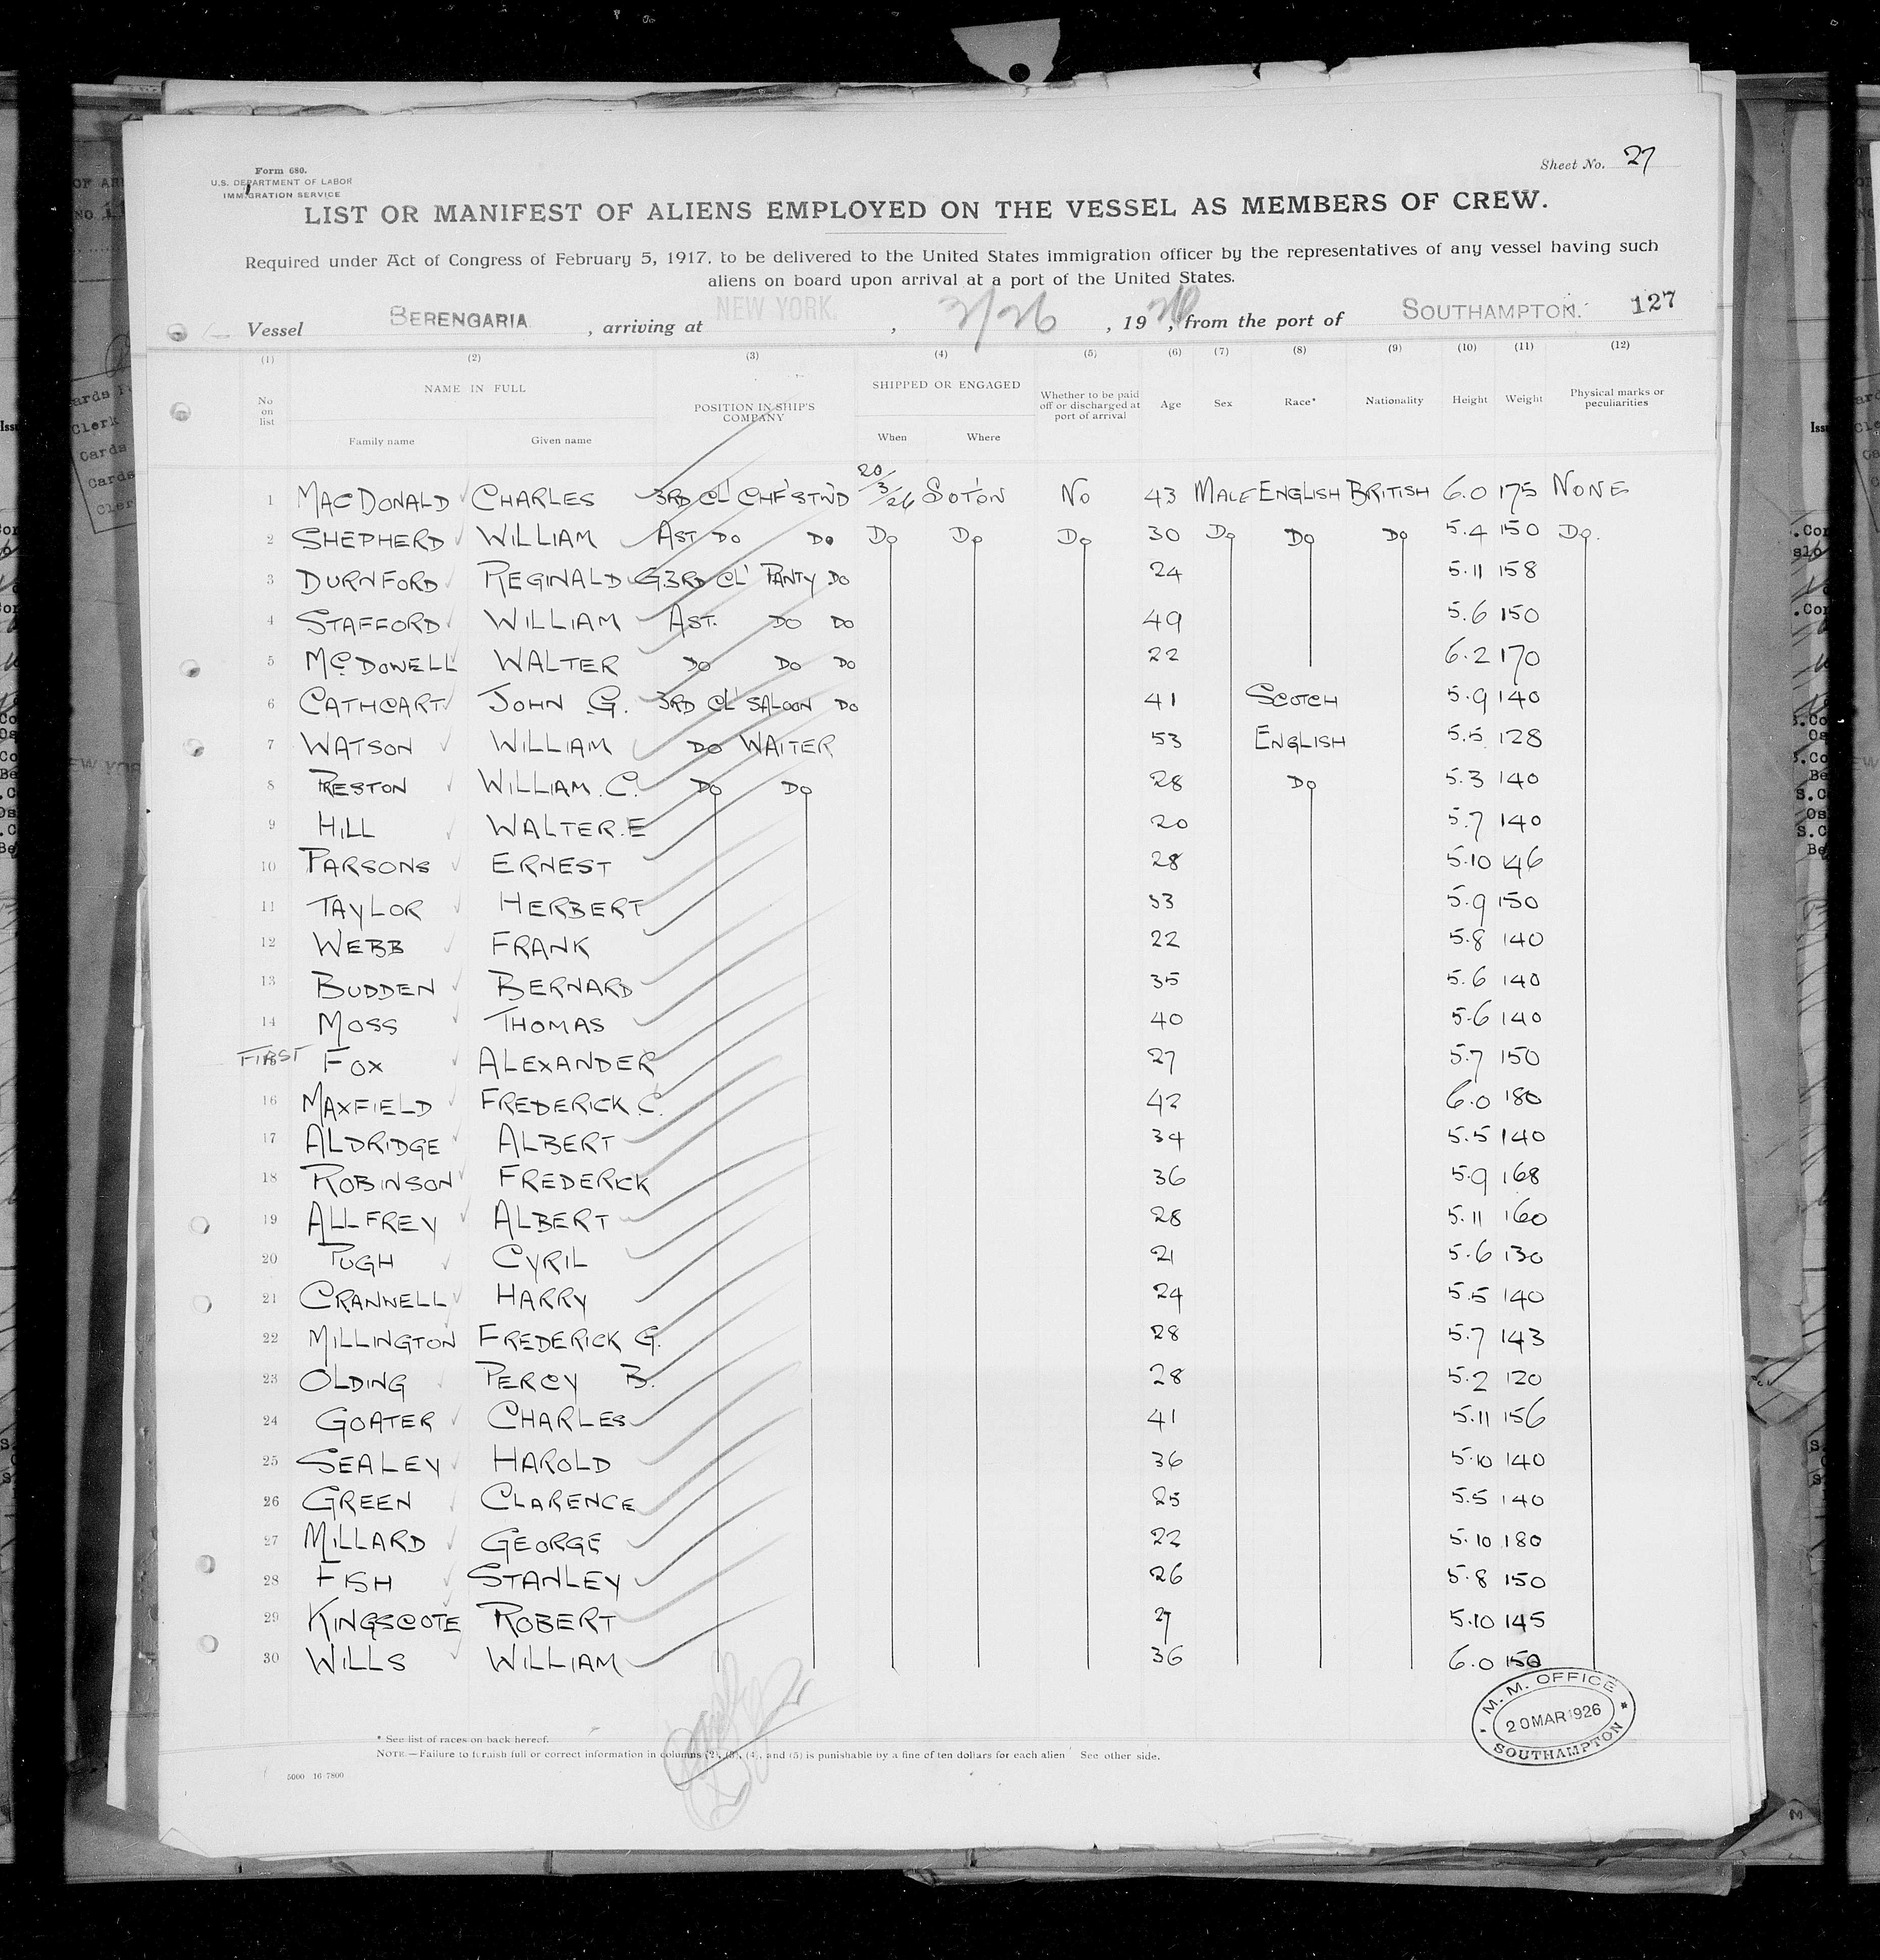 Form 680.
U.S. DEPARTMENT OF LABOR
IMMIGRATION SERVICE
Sheet No. 27
LIST OR MANIFEST OF ALIENS EMPLOYED ON THE VESSEL AS MEMBERS OF CREW.
Required under Act of Congress of February 5, 1917, to be delivered to the United States immigration officer by the representatives of any vessel having such
aliens on board upon arrival at a port of the United States.
Vessel BERENGARIA, arriving at NEW YORK., 3/26, 1926, from the port of SOUTHAMPTON. 127
(1) (2) (3) (4) (5) (6) (7) (8) (9) (10) (11) (12)
No on list NAME IN FULL Family name Given name POSITION IN SHIP'S COMPANY SHIPPED OR ENGAGED When Where Whether to be paid off or discharged at port of arrival Age Sex Race* Nationality Height Weight Physical marks or peculiarities
1 MACDONALD CHARLES 3RD CL' CHF'STW'D 20/3/26 SOTON NO 43 MALE ENGLISH BRITISH 6.0 175 NONE
2 SHEPHERD WILLIAM AST DO DO DO DO DO 30 DO DO DO 5.4 150 DO.
3 DURNFORD REGINALD G 3RD CL' PANTY DO 24 5.11 158
4 STAFFORD WILLIAM AST. DO DO 49 5.6 150
5 MCDOWELL WALTER DO DO DO 22 6.2 170
6 CATHCART JOHN G. 3RD CL' SALOON DO 41 SCOTCH 5.9 140
7 WATSON WILLIAM DO WAITER 53 ENGLISH 5.5 128
8 PRESTON WILLIAM.C. DO DO 28 DO 5.3 140
9 HILL WALTER.E 20 5.7 140
10 PARSONS ERNEST 28 5.10 146
11 TAYLOR HERBERT 33 5.9 150
12 WEBB FRANK 22 5.8 140
13 BUDDEN BERNARD 35 5.6 140
14 MOSS THOMAS 40 5.6 140
FIRST FOX ALEXANDER 27 5.7 150
16 MAXFIELD FREDERICK.C. 42 6.0 180
17 ALDRIDGE ALBERT 34 5.5 140
18 ROBINSON FREDERICK 36 5.9 168
19 ALLFREY ALBERT 28 5.11 160
20 PUGH CYRIL 21 5.6 130
21 CRANNELL HARRY 24 5.5 140
22 MILLINGTON FREDERICK G. 28 5.7 143
23 OLDING PERCY B. 28 5.2 120
24 GOATER CHARLES 41 5.11 156
25 SEALEY HAROLD 36 5.10 140
26 GREEN CLARENCE 25 5.5 140
27 MILLARD GEORGE 22 5.10 180
28 FISH STANLEY 26 5.8 150
29 KINGSCOTE ROBERT 27 5.10 145
30 WILLS WILLIAM 36 6.0 150
M. M. OFFICE
20 MAR 1926
SOUTHAMPTON
* See list of races on back hereof.
NOTE.—Failure to furnish full or correct information in columns (2), (3), (4), and (5) is punishable by a fine of ten dollars for each alien See other side.
5000 16-7800